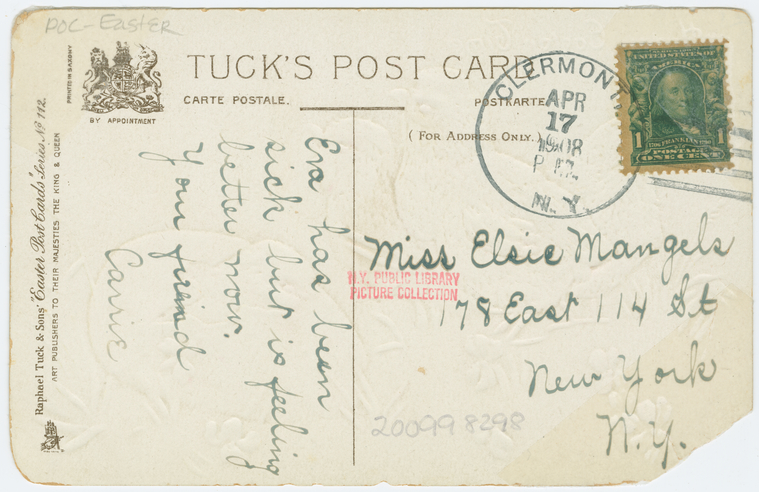 POC-EastER
PRINTED IN SAXONY
BY APPOINTMENT
TUCK'S POST CARD
CARTE POSTALE.
POSTKARTE
( FOR ADDRESS ONLY. )
CLERMONT,
APR
17
1908
N. Y.
UNITED STATES OF
AMERICA
1706 FRANKLIN 1790
1 POSTAGE 1
ONE CENT
Raphael Tuck & Sons' "Easter Post Cards" Series No 112.
ART PUBLISHERS TO THEIR MAJESTIES THE KING & QUEEN
Eva has been
sick but is feeling
better now.
Your friend
Carrie
Miss Elsie Mangels
178 East 114 St
New York
N.Y.
N.Y. PUBLIC LIBRARY
PICTURE COLLECTION
200998298